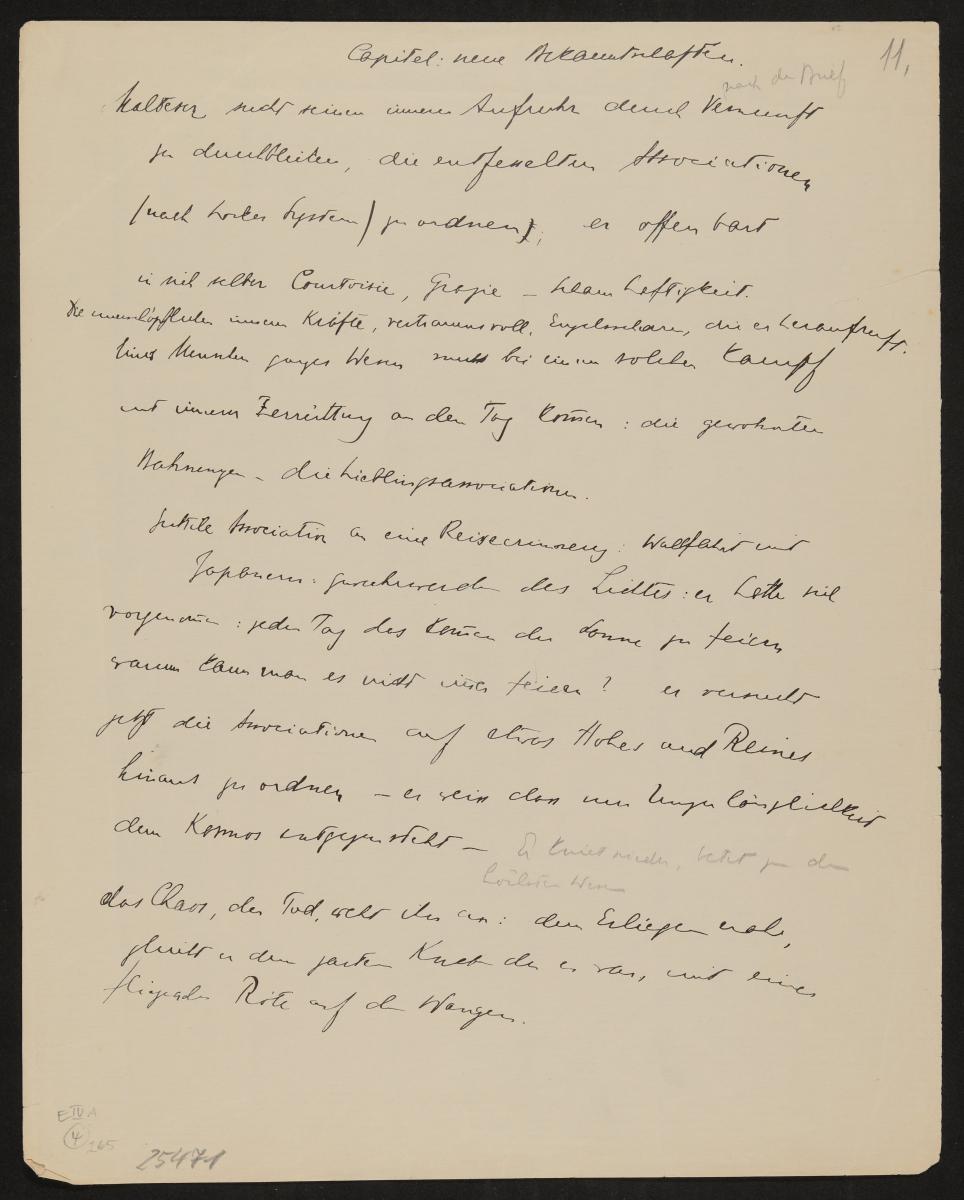 Capitel: neue Bekanntschaften.
11,
nach dem Brief
Malteser sucht seinen inneren Aufruhr durch Vernunft
zu durchleuchten, die entfesselten Associationen
(nach Lockes System) zu ordnen; er offenbart
in sich selber Courtoisie, Grazie – kaum Heftigkeit.
Die unerschöpflichen inneren Kräfte, vertrauensvoll, Engelscharen, die er heraufruft.
Eines Menschen ganzes Wesen muss bei einem solchen Kampf
mit innerer Zerrüttung an den Tag kommen: die gewohnten
Bahnungen – die Lieblingsassociationen.
Association an eine Reiseerinnerung: Wallfahrt mit
Japanern: gewahrwerden des Lichtes: er hatte sich
vorgenommen: jeden Tag das Kommen der Sonne zu feiern
warum kann man es nicht immer feiern? er versucht
jetzt die Associationen auf etwas Hohes und Reines
hinaus zu ordnen – er weiss dass nur Unzulänglichkeit
dem Kosmos entgegensteht –
Er kniet nieder, betet zu dem
höchsten Wesen
das Chaos, der Tod, weht ihn an: dem Erliegen nahe,
gleicht er dem zarten Knaben der er war, mit einer
fliegenden Röte auf den Wangen.
E IV A
4
265
25471